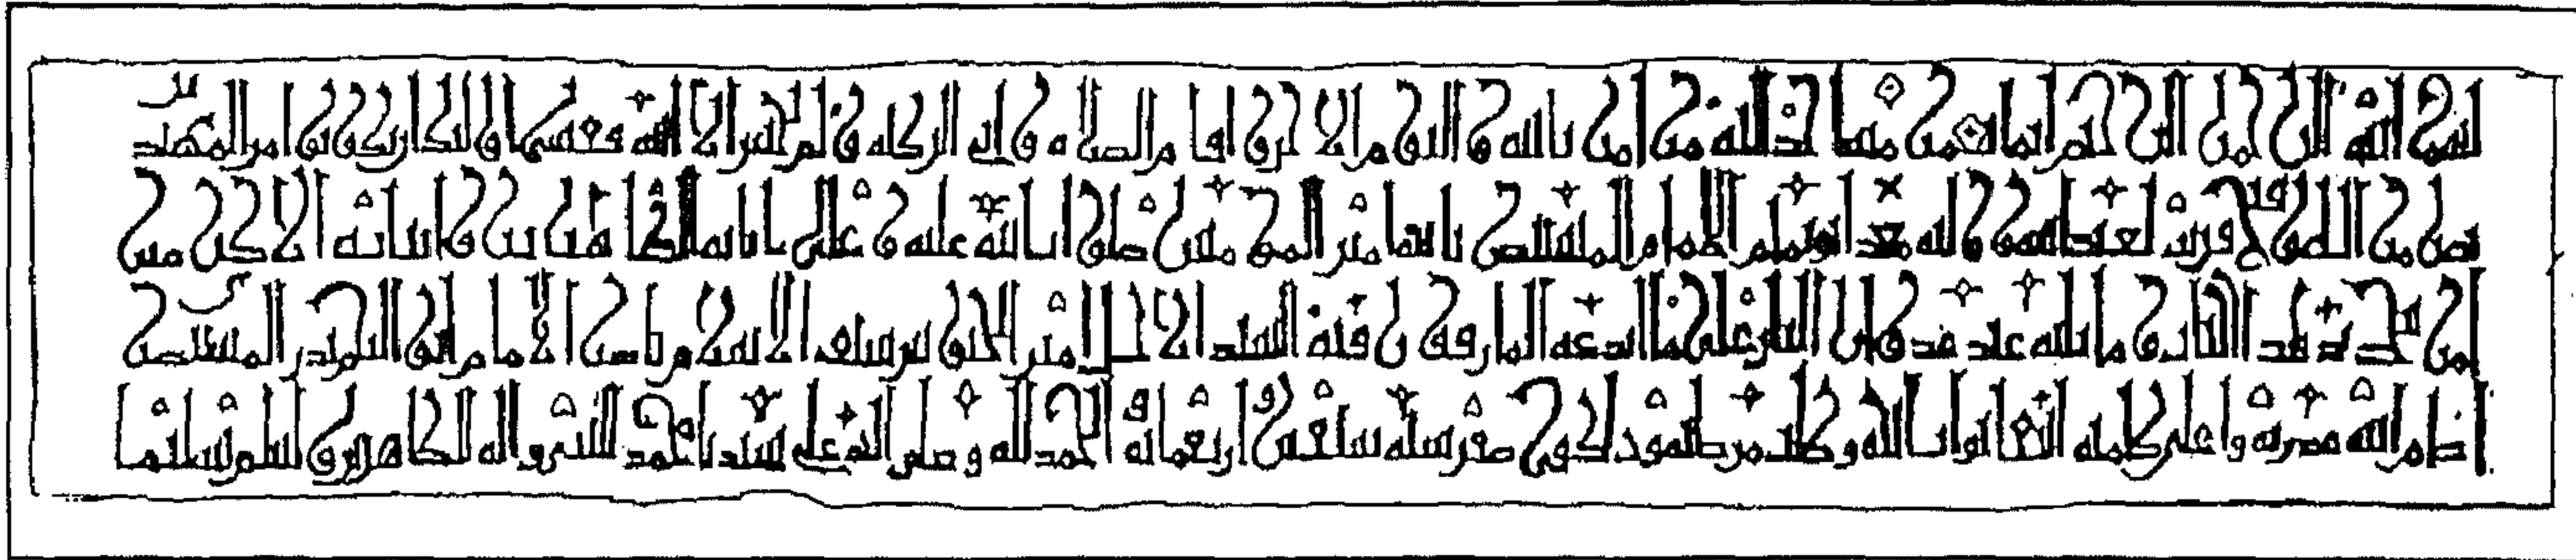 بسم الله الرحمن الرحيم انما يعمر مساجد الله من آمن بالله واليوم الآخر واقام الصلاة وآتى الزكاة ولم يخش الا الله فعسى اولئك ان يكونوا من المهتدين
نصر من الله وفتح قريب لعبد الله ووليه معد ابي تميم الامام المستنصر بالله امير المؤمنين صلوات الله عليه وعلى آبائه الطاهرين وابنائه الاكرمين
امر بتجديد هذا الباب وما يليه عند عدوان النار على ما ابدعه المارقون فيه السيد الاجل امير الجيوش سيف الاسلام ناصر الامام ابو النجم بدر المستنصري
ادام الله قدرته واعلى كلمته ابتغاء ثواب الله وطلب مرضاته وذلك في صفر سنة سبعين واربعمائة الحمد لله وصلى الله على سيدنا محمد النبي وآله الطاهرين وسلم تسليما